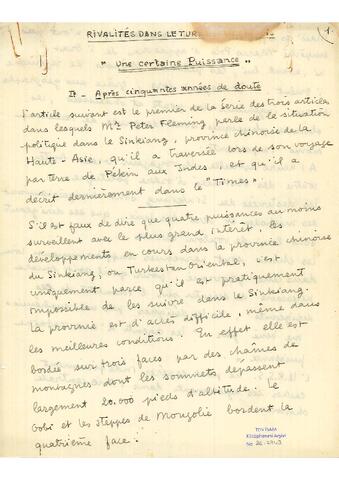 RIVALITÉS DANS LE TUR
1.
" Une certaine Puissance "
II - Après cinquantes années de doute
L'article suivant est le premier de la Série des trois articles
dans lesquels Mr Peter Fleming parle de la situation
politique dans le Sinkiang, province chinoise de la
Haute-Asie, qu'il a traversée lors de son voyage
par terre de Pékin aux Indes, et qu'il a
décrit dernièrement dans le "Times".
S'il est faux de dire que quatre puissances au moins
surveillent avec le plus grand intérêt, les
développements en cours dans la province chinoise
du Sinkiang, ou Turkestan Oriental, c'est
uniquement parce qu'il est pratiquement
impossible de les suivre dans le Sinkiang.
La province est d'accès difficile, même dans
les meilleures conditions. En effet elle est
bordée sur trois faces par des chaînes de
montagnes dont les sommets dépassent
largement 20.000 pieds d'altitude. Le
Gobi et les steppes de Mongolie bordent la
quatrième face.
TDV İSAM
Kütüphanesi Arşivi
No